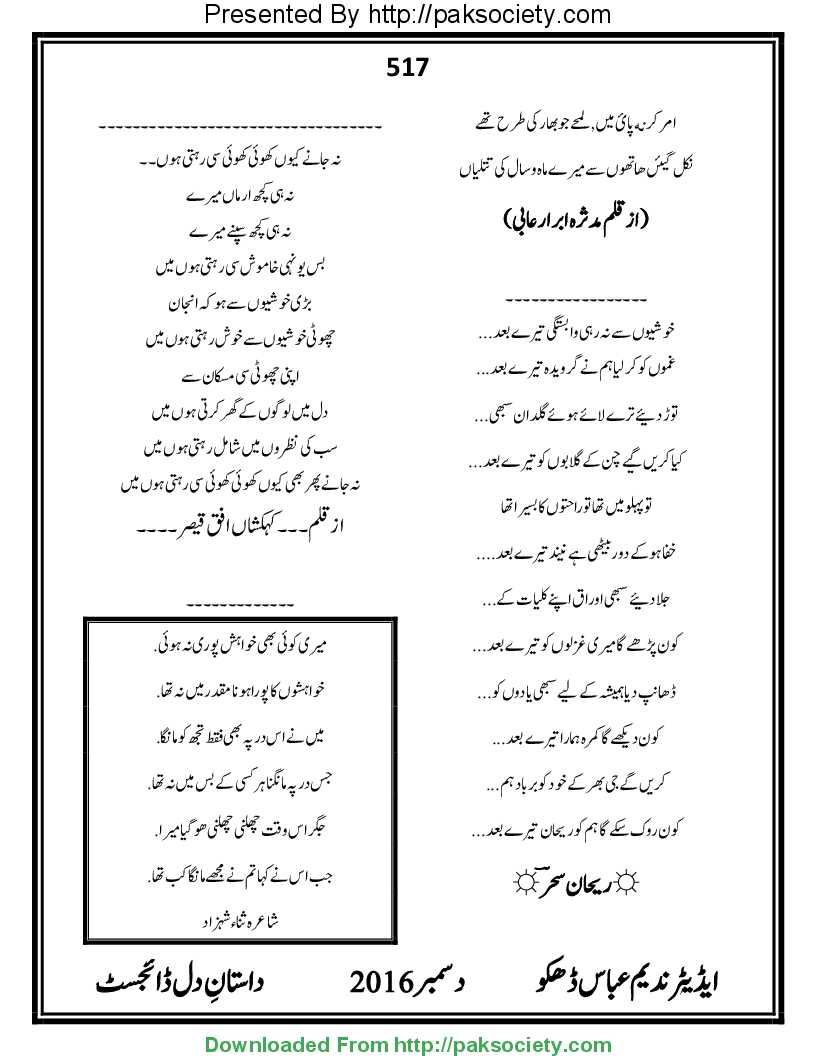 Presented By http://paksociety.com
517
امر کرنہ پائ میں, لمحے جو بھار کی طرح تھے
نکل گیئں ھاتھوں سے میرے ماہ و سال کی تتلیاں
(از قلم مدثرہ ابرار عابی)
-----------------
خوشیوں سے نہ رہی وابستگی تیرے بعد...
غموں کو کر لیا ہم نے گرویدہ تیرے بعد...
توڑ دیئے ترے لائے ہوئے گلدان سبھی...
کیا کریں گیے چن کے گلابوں کو تیرے بعد...
تو پہلو میں تھا تو راحتوں کا بسیرا تھا
خفا ہو کے دور بیٹھی ہے نیند تیرے بعد....
جلا دیئے سبھی اوراق اپنے کلیات کے...
کون پڑھے گا میری غزلوں کو تیرے بعد...
ڈھانپ دیا ہمیشہ کے لیے سبھی یادوں کو...
کون دیکھے گا کمرہ ہمارا تیرے بعد...
کریں گے جی بھر کے خود کو برباد ہم...
کون روک سکے گا ہم کو ریحان تیرے بعد...
☼ریحان سحر☼
----------------------------------
نہ جانے کیوں کھوئی کھوئی سی رہتی ہوں۔۔
نہ ہی کچھ ارماں میرے
نہ ہی کچھ سپنے میرے
بس یونہی خاموش سی رہتی ہوں میں
بڑی خوشیوں سے ہو کہ انجان
چھوٹی خوشیوں سے خوش رہتی ہوں میں
اپنی چھوٹی سی مسکان سے
دل میں لوگوں کے گھر کرتی ہوں میں
سب کی نظروں میں شامل رہتی ہوں میں
نہ جانے پھر بھی کیوں کھوئی کھوئی سی رہتی ہوں میں
از قلم۔۔۔ کہکشاں افق قیصر۔۔۔۔
-------------
میری کوئی بھی خواہش پوری نہ ہوئی.
خواہشوں کا پورا ہونا مقدر میں نہ تھا.
میں نے اس در پہ بھی فقط تجھ کو مانگا.
جس در پہ مانگنا ہر کسی کے بس میں نہ تھا.
جگر اس وقت چھلنی چھلنی ھو گیا میرا.
جب اس نے کہا تم نے مجھے مانگا کب تھا.
شاعرہ ثناء شہزاد
ایڈیٹر ندیم عباس ڈھکو دسمبر 2016 داستانِ دل ڈائجسٹ
Downloaded From http://paksociety.com